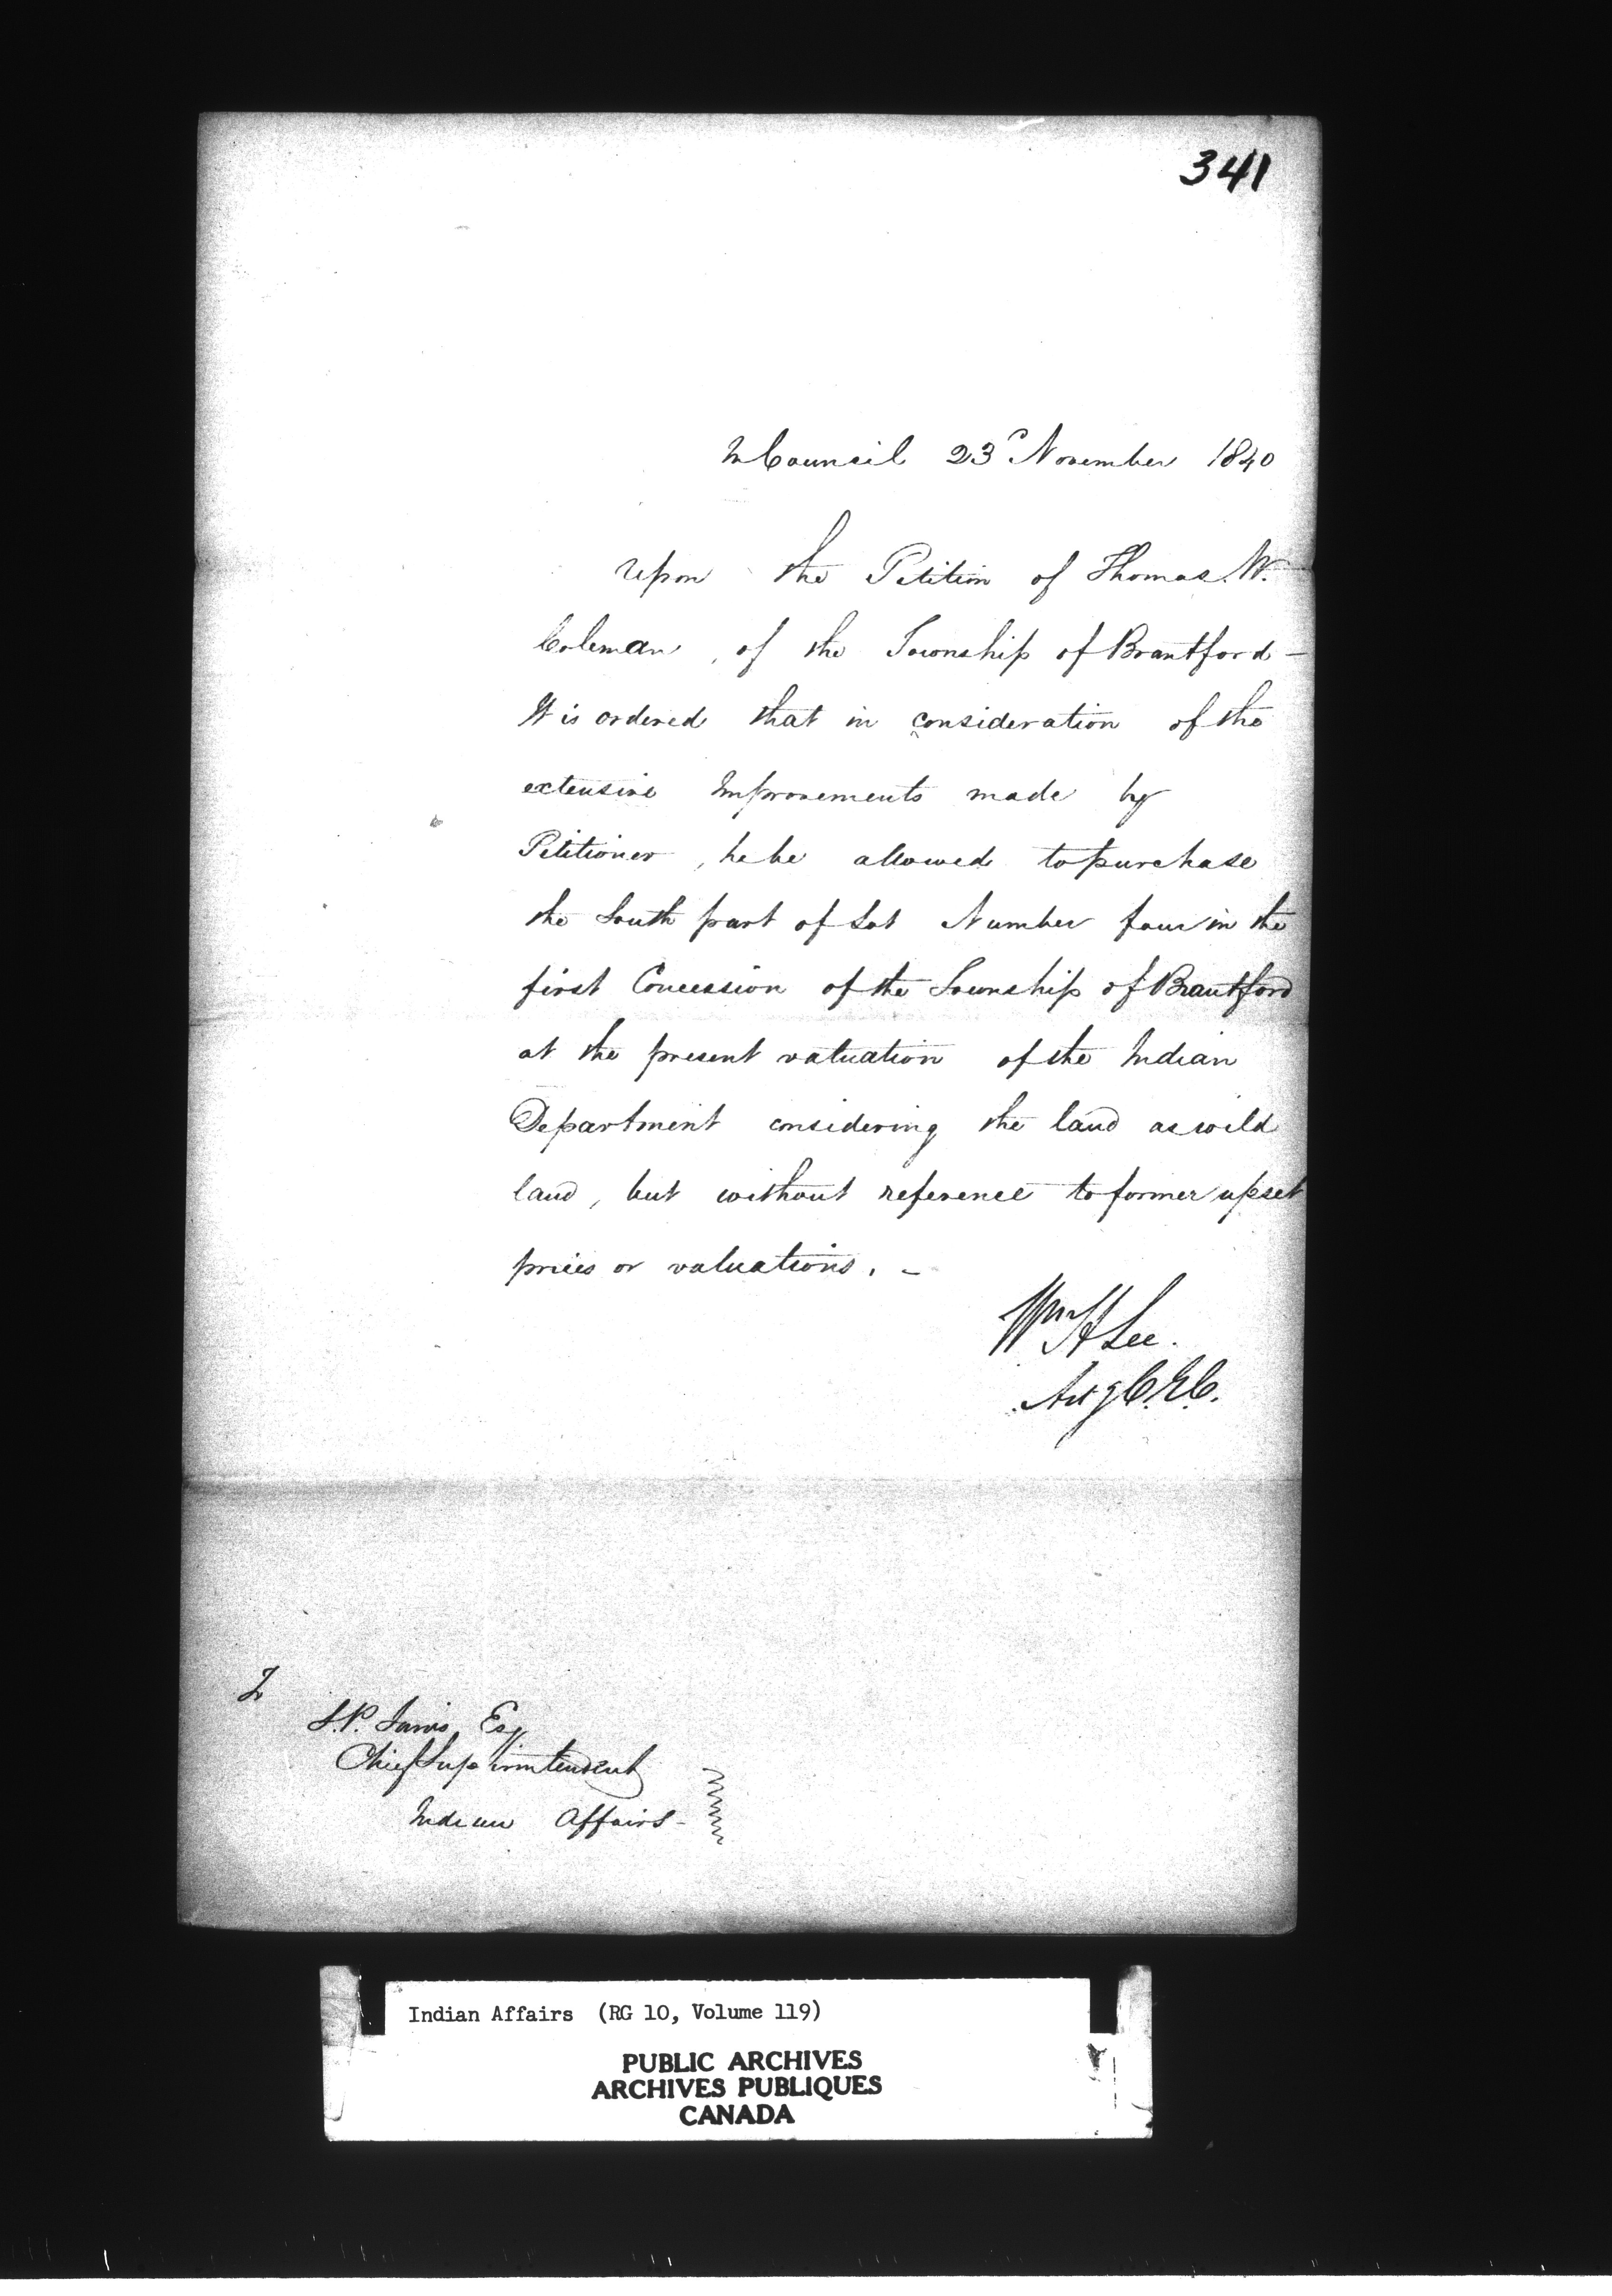 341
In Council 23d November 1840
Upon the Petition of Thomas W.
Coleman, of the Township of Brantford -
It is ordered that in consideration of the
extensive Improvements made by
Petitioner, he be allowed to purchase
the South part of Lot Number four in the
first Concession of the Township of Brantford
at the present valuation of the Indian
Department considering the land as wild
land, but without reference to former upset
prices or valuations. -
Wm H Lee.
Actg C.E.C.
To
S.P. Jarvis Esq
Chief Superintendent
Indian Affairs -
Indian Affairs (RG 10, Volume 119)
PUBLIC ARCHIVES
ARCHIVES PUBLIQUES
CANADA